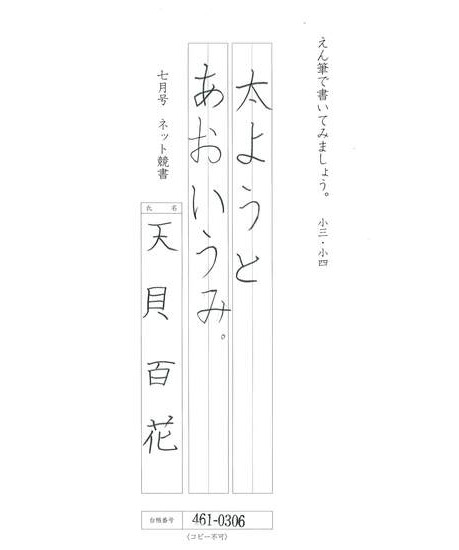 えん筆で書いてみましょう。 小三・小四
太ようと
あおいうみ。
七月号 ネット競書
氏名
天貝百花
台帳番号 461-0306
(コピー不可)